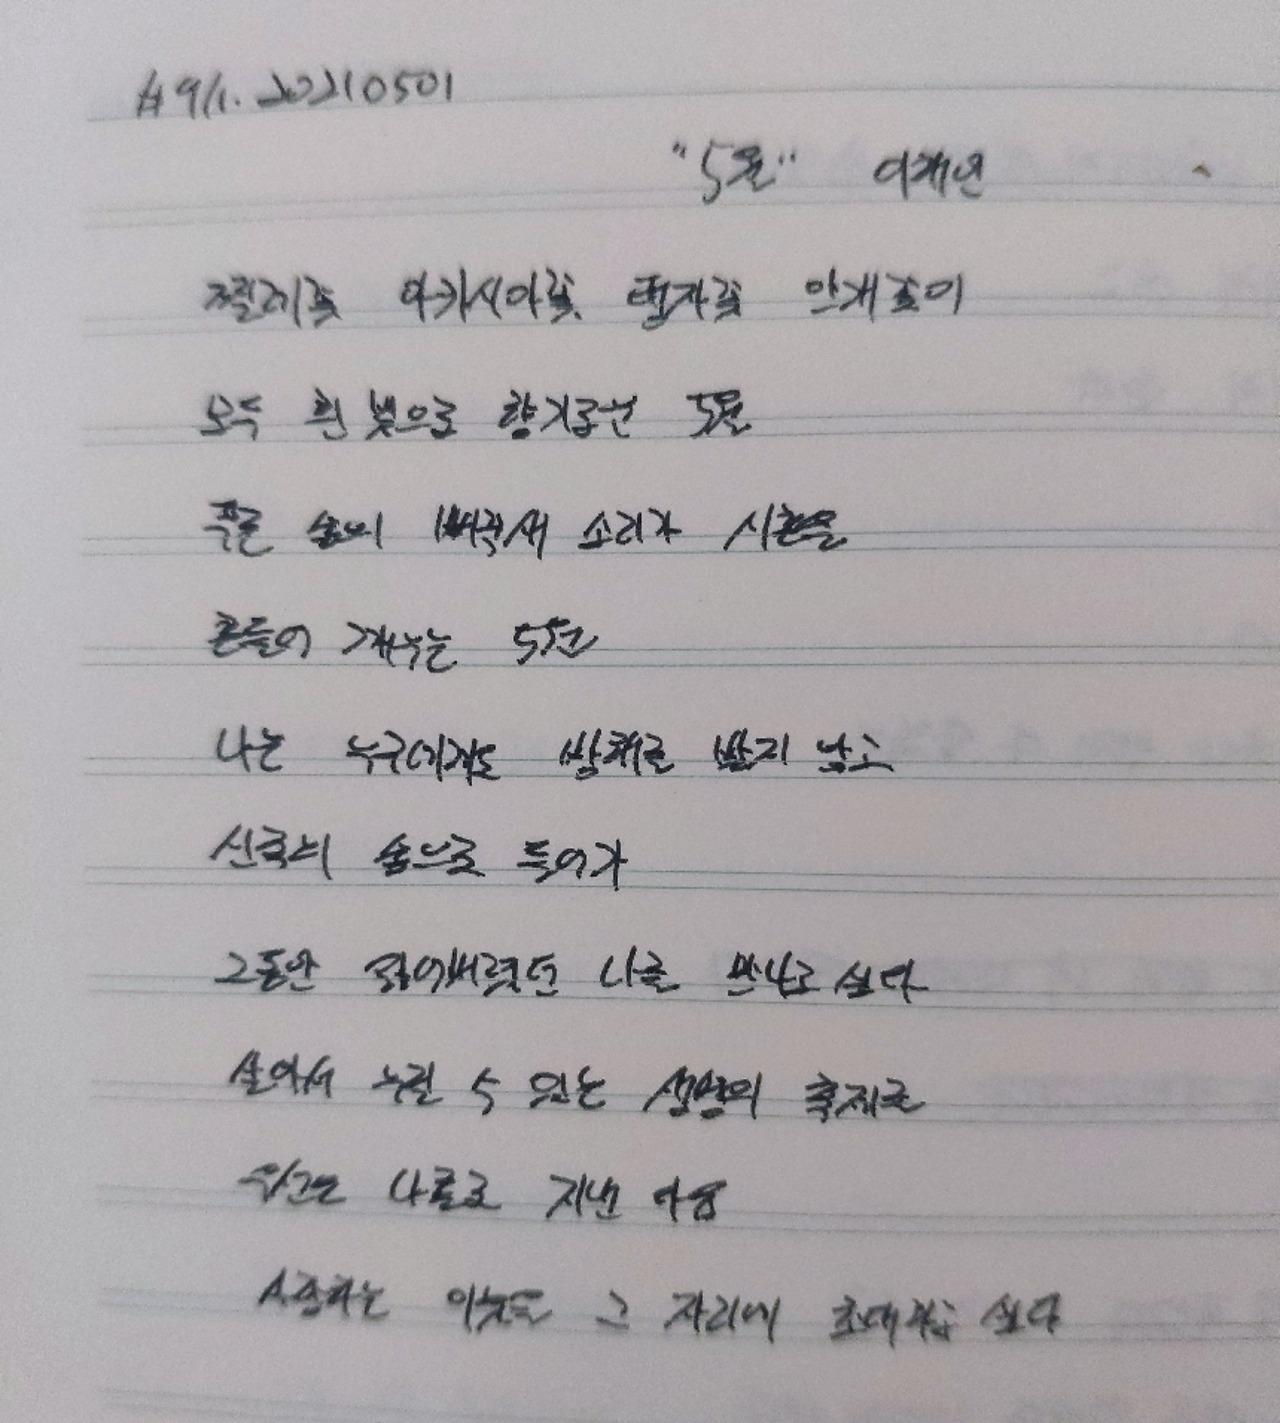 #91. 20210501
"5월" 이해인
찔레꽃 아카시아꽃 탱자꽃 안개꽃이
모두 흰 빛으로 향기로운 5월
푸른 숲의 뻐꾹새 소리가 시혼을
흔들어 깨우는 5월
나는 누구에게도 방해를 받지 않고
신록의 숲으로 들어가
그동안 잃어버렸던 나를 만나고 싶다
살아서 누릴 수 있는 생명의 축제를
우선은 나홀로 지낸 다음
사랑하는 이웃을 그 자리에 초대하고 싶다